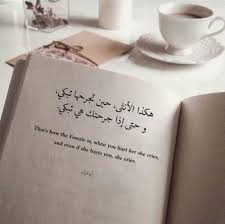 هكذا الأنثى، حين تجرحها تبكي،
و حتى إذا جرحتك هي تبكي.
That's how the Female is, when you hurt her she cries,
and even if she hurts you, she cries.